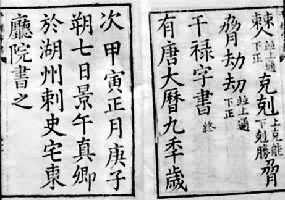 並上通下正克剋上克能下剋勝
劫並上通下正
干禄字書終
有唐大曆九秊歲
次甲寅正月庚子
朔七日景午真卿
於湖州刺史宅東
廳院書之